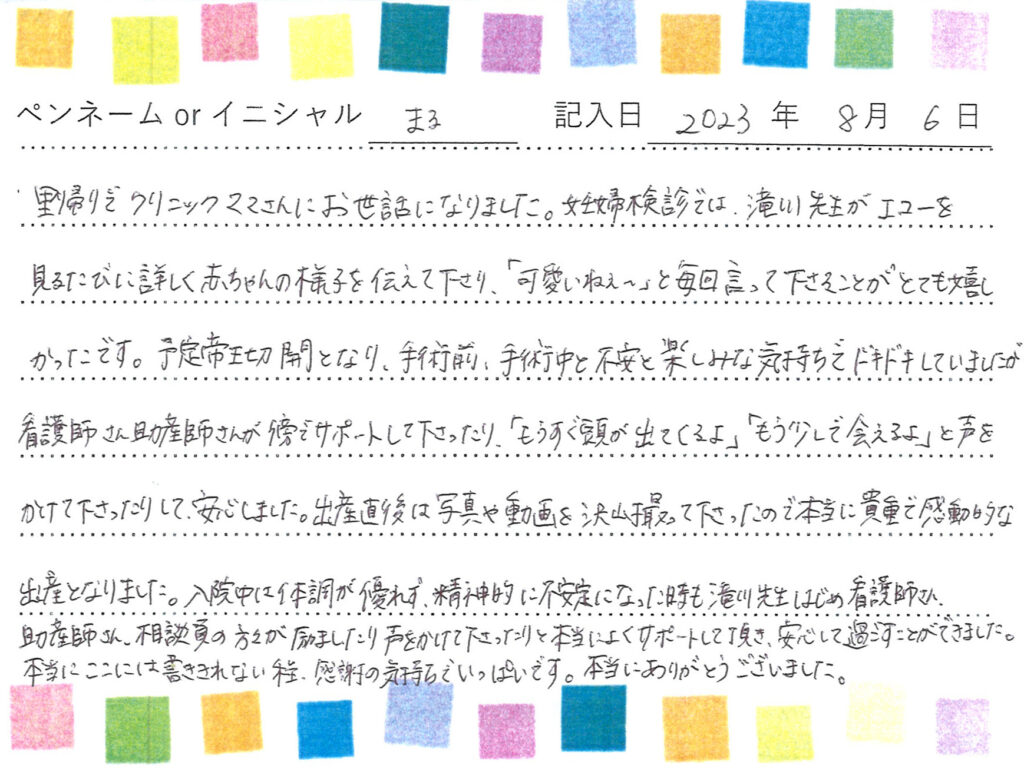 ペンネーム or イニシャル まる 記入日 2023 年 8月 6日
里帰りでクリニックママさんにお世話になりました。妊婦検診では、滝川先生がエコーを
見るたびに詳しく赤ちゃんの様子を伝えて下さり、「可愛いねぇ〜」と毎回言って下さることがとても嬉し
かったです。予定帝王切開となり、手術前、手術中と不安と楽しみな気持ちでドキドキしていましたが
看護師さん助産師さんが傍でサポートして下さったり、「もうすぐ頭が出てくるよ」「もう少しで会えるよ」と声を
かけて下さったりして、安心しました。出産直後は写真や動画を沢山撮って下さったので本当に貴重で感動的な
出産となりました。入院中は体調が優れず、精神的に不安定になった時も滝川先生はじめ看護師さん、
助産師さん、相談員の方々が励ましたり声をかけて下さったりと本当によくサポートして頂き、安心して過すことができました。
本当にここには書ききれない程、感謝の気持ちでいっぱいです。本当にありがとうございました。